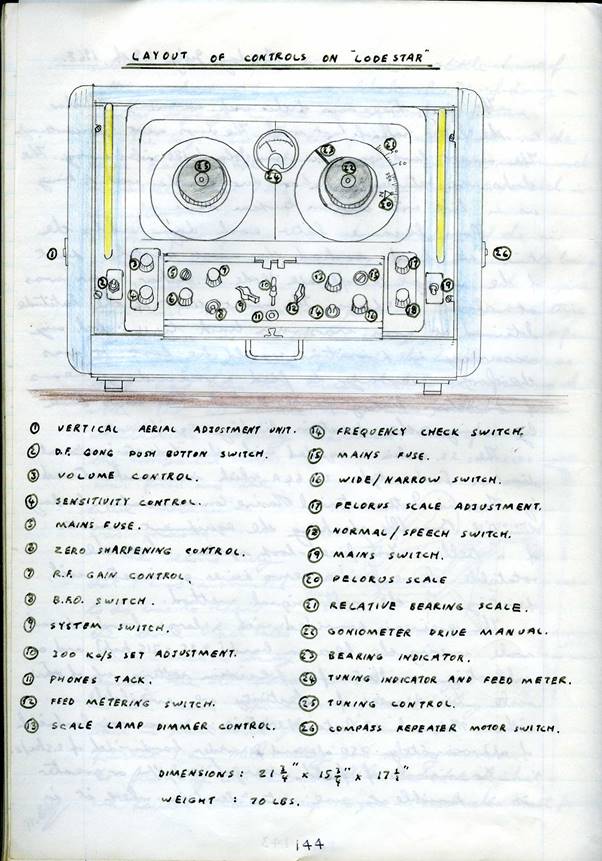 LAYOUT OF CONTROLS ON "LODESTAR"
① VERTICAL AERIAL ADJUSTMENT UNIT.
② D.F. GONG PUSH BUTTON SWITCH.
③ VOLUME CONTROL.
④ SENSITIVITY CONTROL.
⑤ MAINS FUSE.
⑥ ZERO SHARPENING CONTROL.
⑦ R.F. GAIN CONTROL.
⑧ B.F.O. SWITCH.
⑨ SYSTEM SWITCH.
⑩ 300 Kc/s SET ADJUSTMENT.
⑪ PHONES JACK.
⑫ FEED METERING SWITCH.
⑬ SCALE LAMP DIMMER CONTROL.
⑭ FREQUENCY CHECK SWITCH.
⑮ MAINS FUSE.
⑯ WIDE/NARROW SWITCH.
⑰ PELORUS SCALE ADJUSTMENT.
⑱ NORMAL/SPEECH SWITCH.
⑲ MAINS SWITCH.
⑳ PELORUS SCALE
㉑ RELATIVE BEARING SCALE.
㉒ GONIOMETER DRIVE MANUAL.
㉓ BEARING INDICATOR.
㉔ TUNING INDICATOR AND FEED METER.
㉕ TUNING CONTROL.
㉖ COMPASS REPEATER MOTOR SWITCH.
DIMENSIONS: 21 3/4" x 15 3/4" x
WEIGHT : 70 LBS.
144